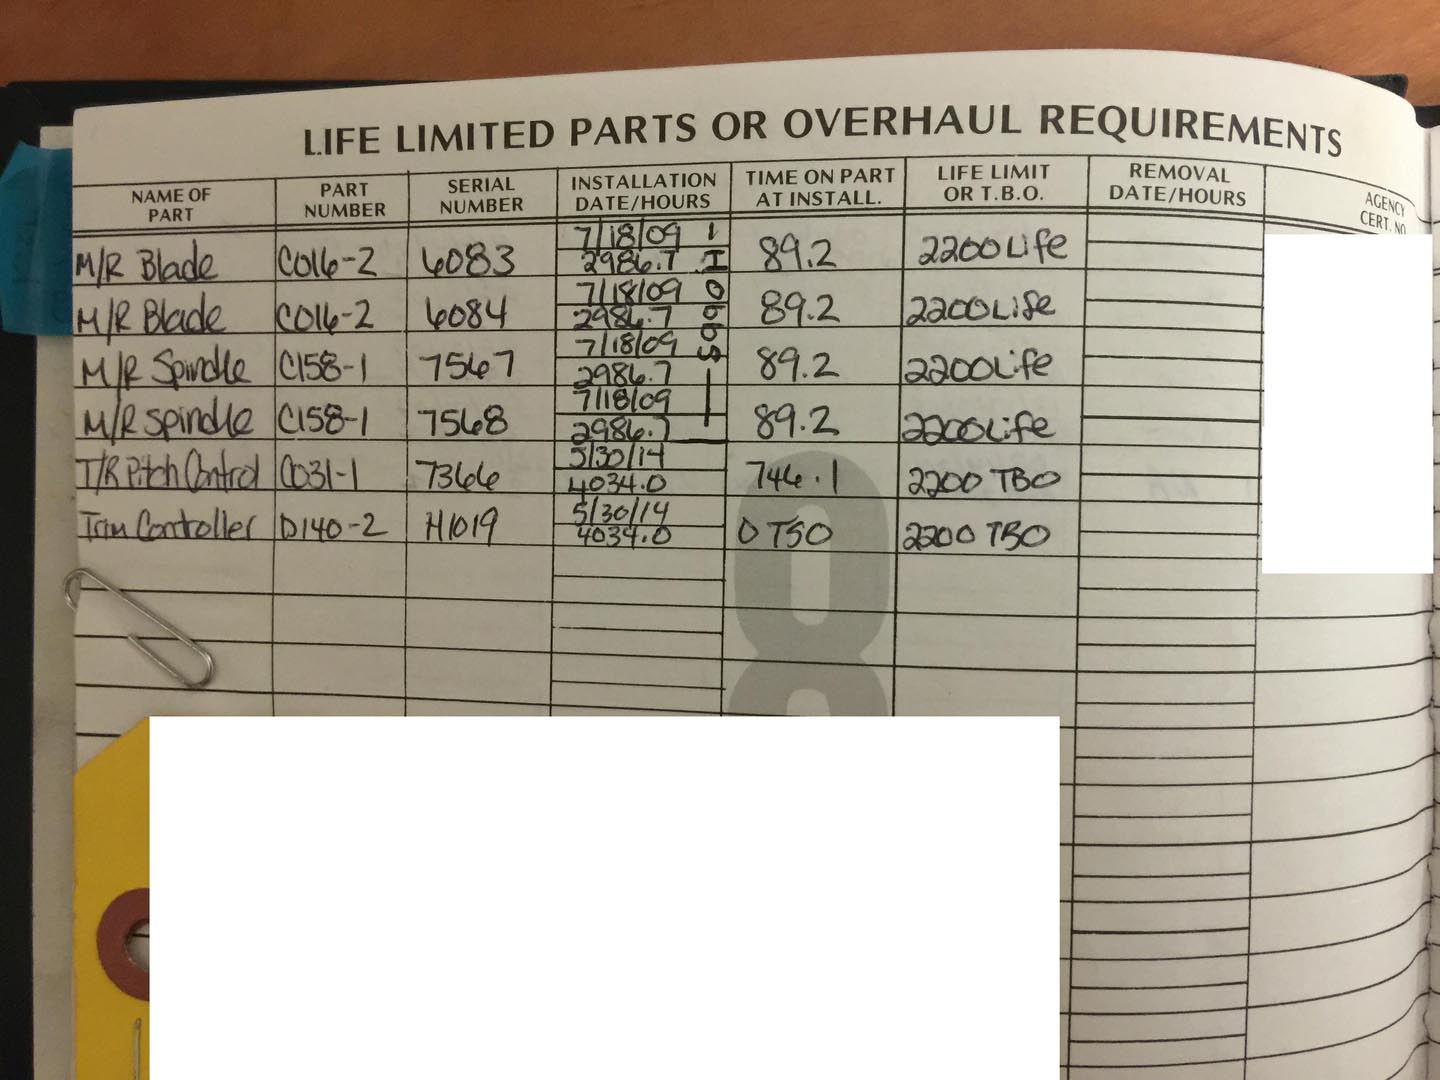 LIFE LIMITED PARTS OR OVERHAUL REQUIREMENTS
NAME OF PART PART NUMBER SERIAL NUMBER INSTALLATION DATE/HOURS TIME ON PART AT INSTALL. LIFE LIMIT OR T.B.O. REMOVAL DATE/HOURS AGENCY CERT. NO.
M/R Blade C016-2 6083 7/18/09 2986.7 89.2 2200 Life
M/R Blade C016-2 6084 7/18/09 2986.7 89.2 2200 Life
M/R Spindle C158-1 7567 7/18/09 2986.7 89.2 2200 Life
M/R Spindle C158-1 7568 7/18/09 2986.7 89.2 2200 Life
T/R Pitch Control C031-1 7366 5/30/14 4034.0 746.1 2200 TBO
Trim Controller D140-2 H1019 5/30/14 4034.0 0 TSO 2200 TBO